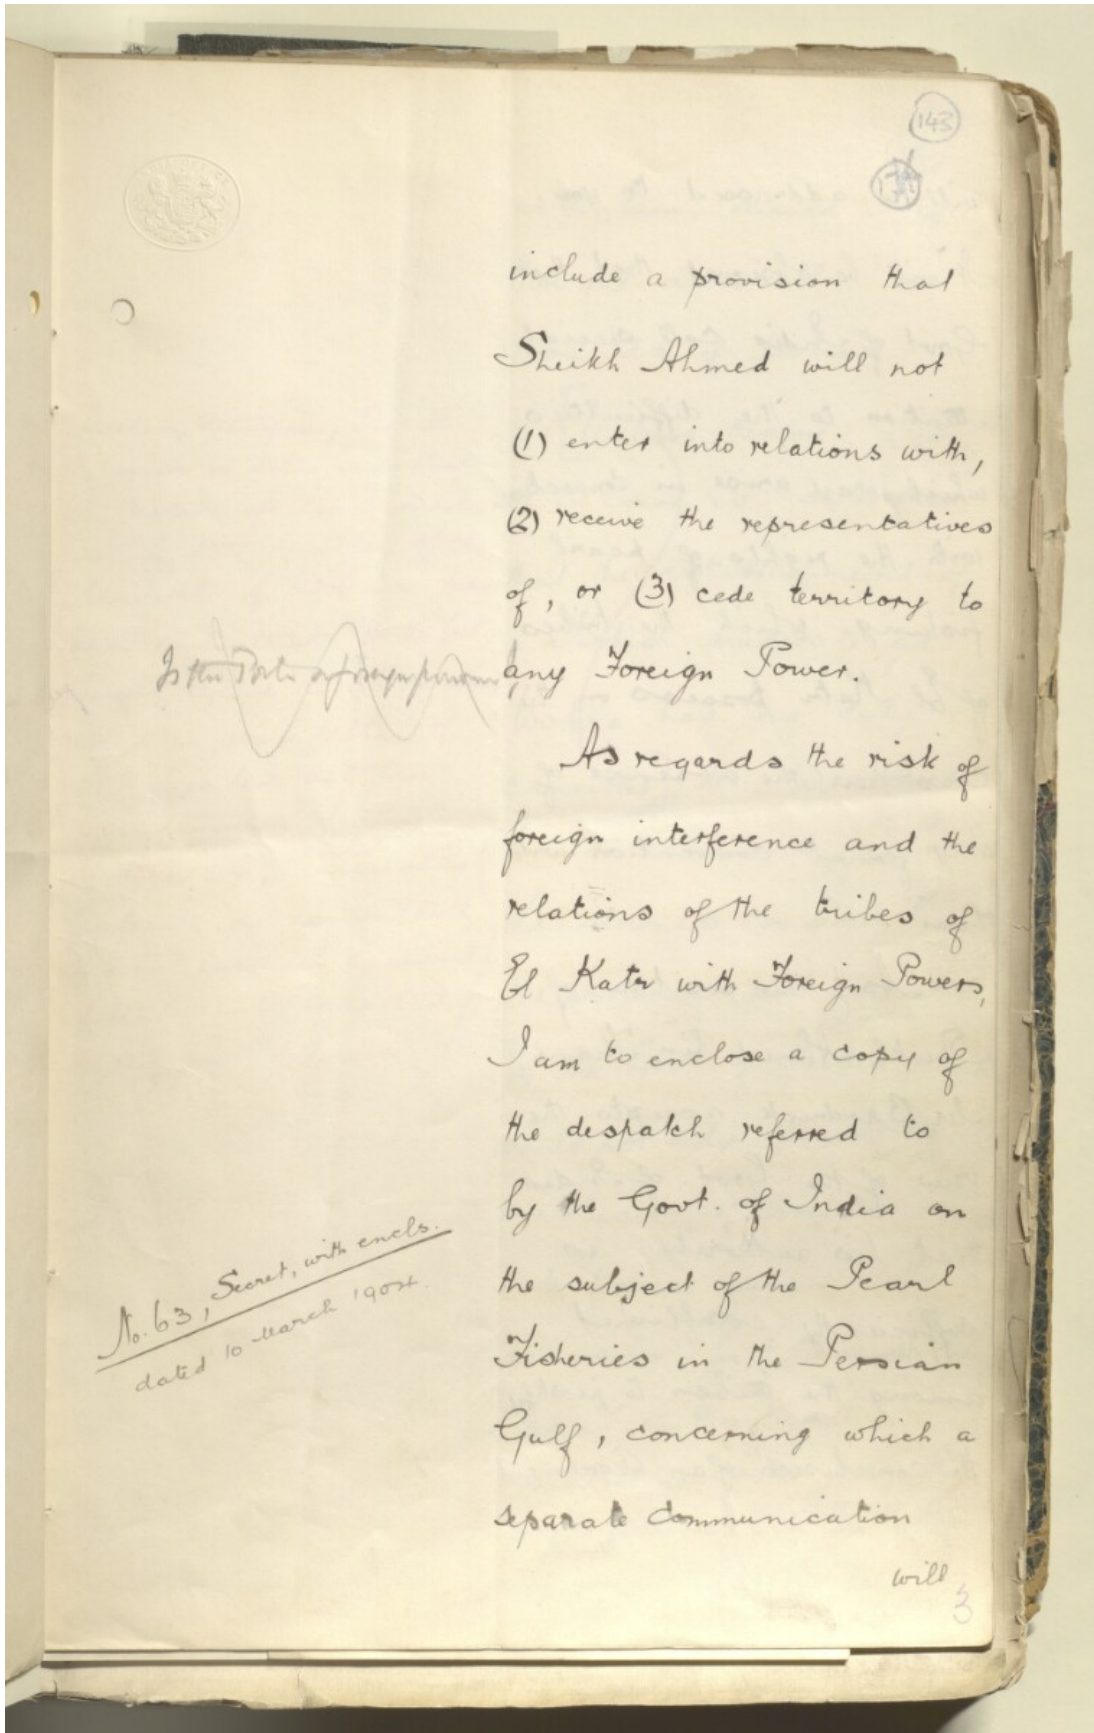 143
include a provision that
Sheikh Ahmed will not
(1) enter into relations with,
(2) receive the representatives
of, or (3) cede territory to
any Foreign Power.
Is the Porte a foreign power
As regards the risk of
foreign interference and the
relations of the tribes of
El Katr with Foreign Powers,
I am to enclose a copy of
the despatch referred to
by the Govt. of India on
the subject of the Pearl
Fisheries in the Persian
Gulf, concerning which a
separate communication
will
No. 63, Secret, with encls.
dated 10 March 1904.
3